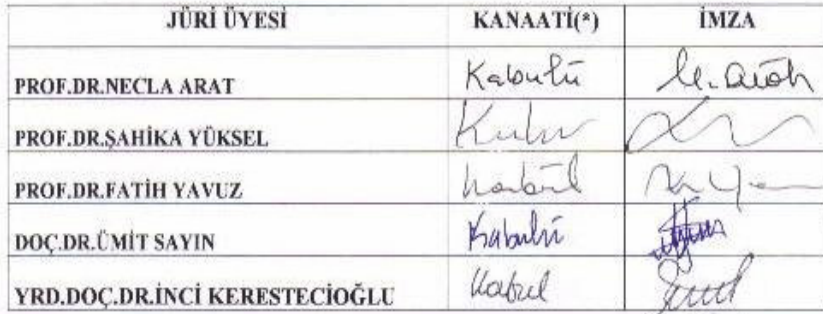 JÜRİ ÜYESİ KANAATİ(*) İMZA
PROF.DR.NECLA ARAT Kabulü N. Arat
PROF.DR.ŞAHİKA YÜKSEL Kabul
PROF.DR.FATİH YAVUZ Kabul
DOÇ.DR.ÜMİT SAYIN Kabulü
YRD.DOÇ.DR.İNCİ KERESTECİOĞLU Kabul